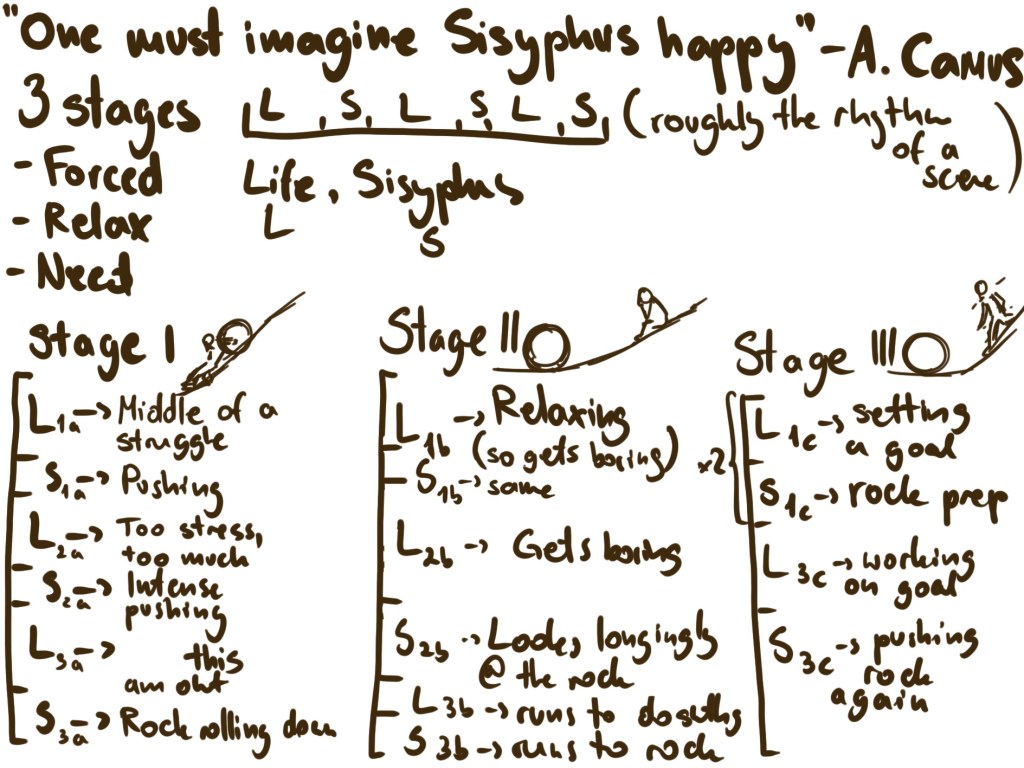 "One must imagine Sisyphus happy" - A. Camus
3 stages
- Forced
- Relax
- Need
L, S, L, S, L, S, (roughly the rhythm
of a
scene)
Life, Sisyphus
L
S
Stage I
L1a → Middle of a
struggle
S1a → Pushing
L2a → Too stress,
too much
S2a → Intense
pushing
L3a → this
am out
S3a → Rock rolling down
Stage II
L1b → Relaxing
(so gets boring)
S1b → same
L2b → Gets boring
S2b → Looks longingly
@ the rock
L3b → runs to do
S3b → runs to rock
Stage III
x2
L1c → setting
a goal
S1c → rock prep
L3c → working
on goal
S3c → pushing
rock
again